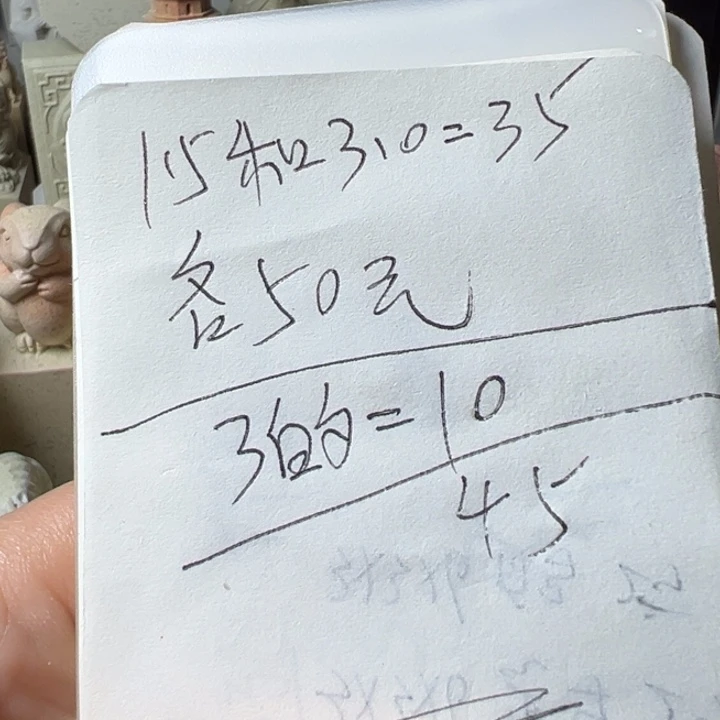 15和3、0=35
各50元
3的=10
45